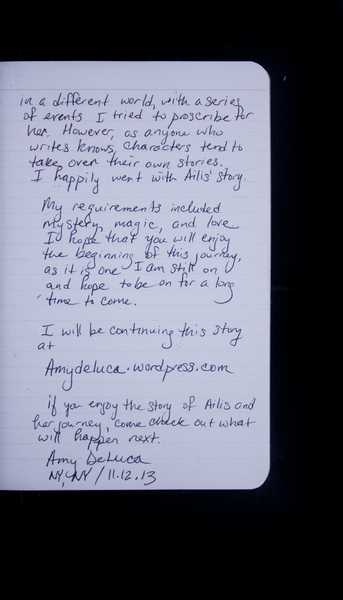 in a different world, with a series
of events I tried to proscribe for
her. However, as anyone who
writes knows, characters tend to
take over their own stories.
I happily went with Ailis' story.
My requirements included
mystery, magic, and love
I hope that you will enjoy
the beginning of this journey,
as it is one I am still on
and hope to be on for a long
time to come.
I will be continuing this story
at
Amydeluca.wordpress.com
if you enjoy the story of Ailis and
her journey, come check out what
will happen next.
Amy DeLuca
NY, NY / 11.12.13